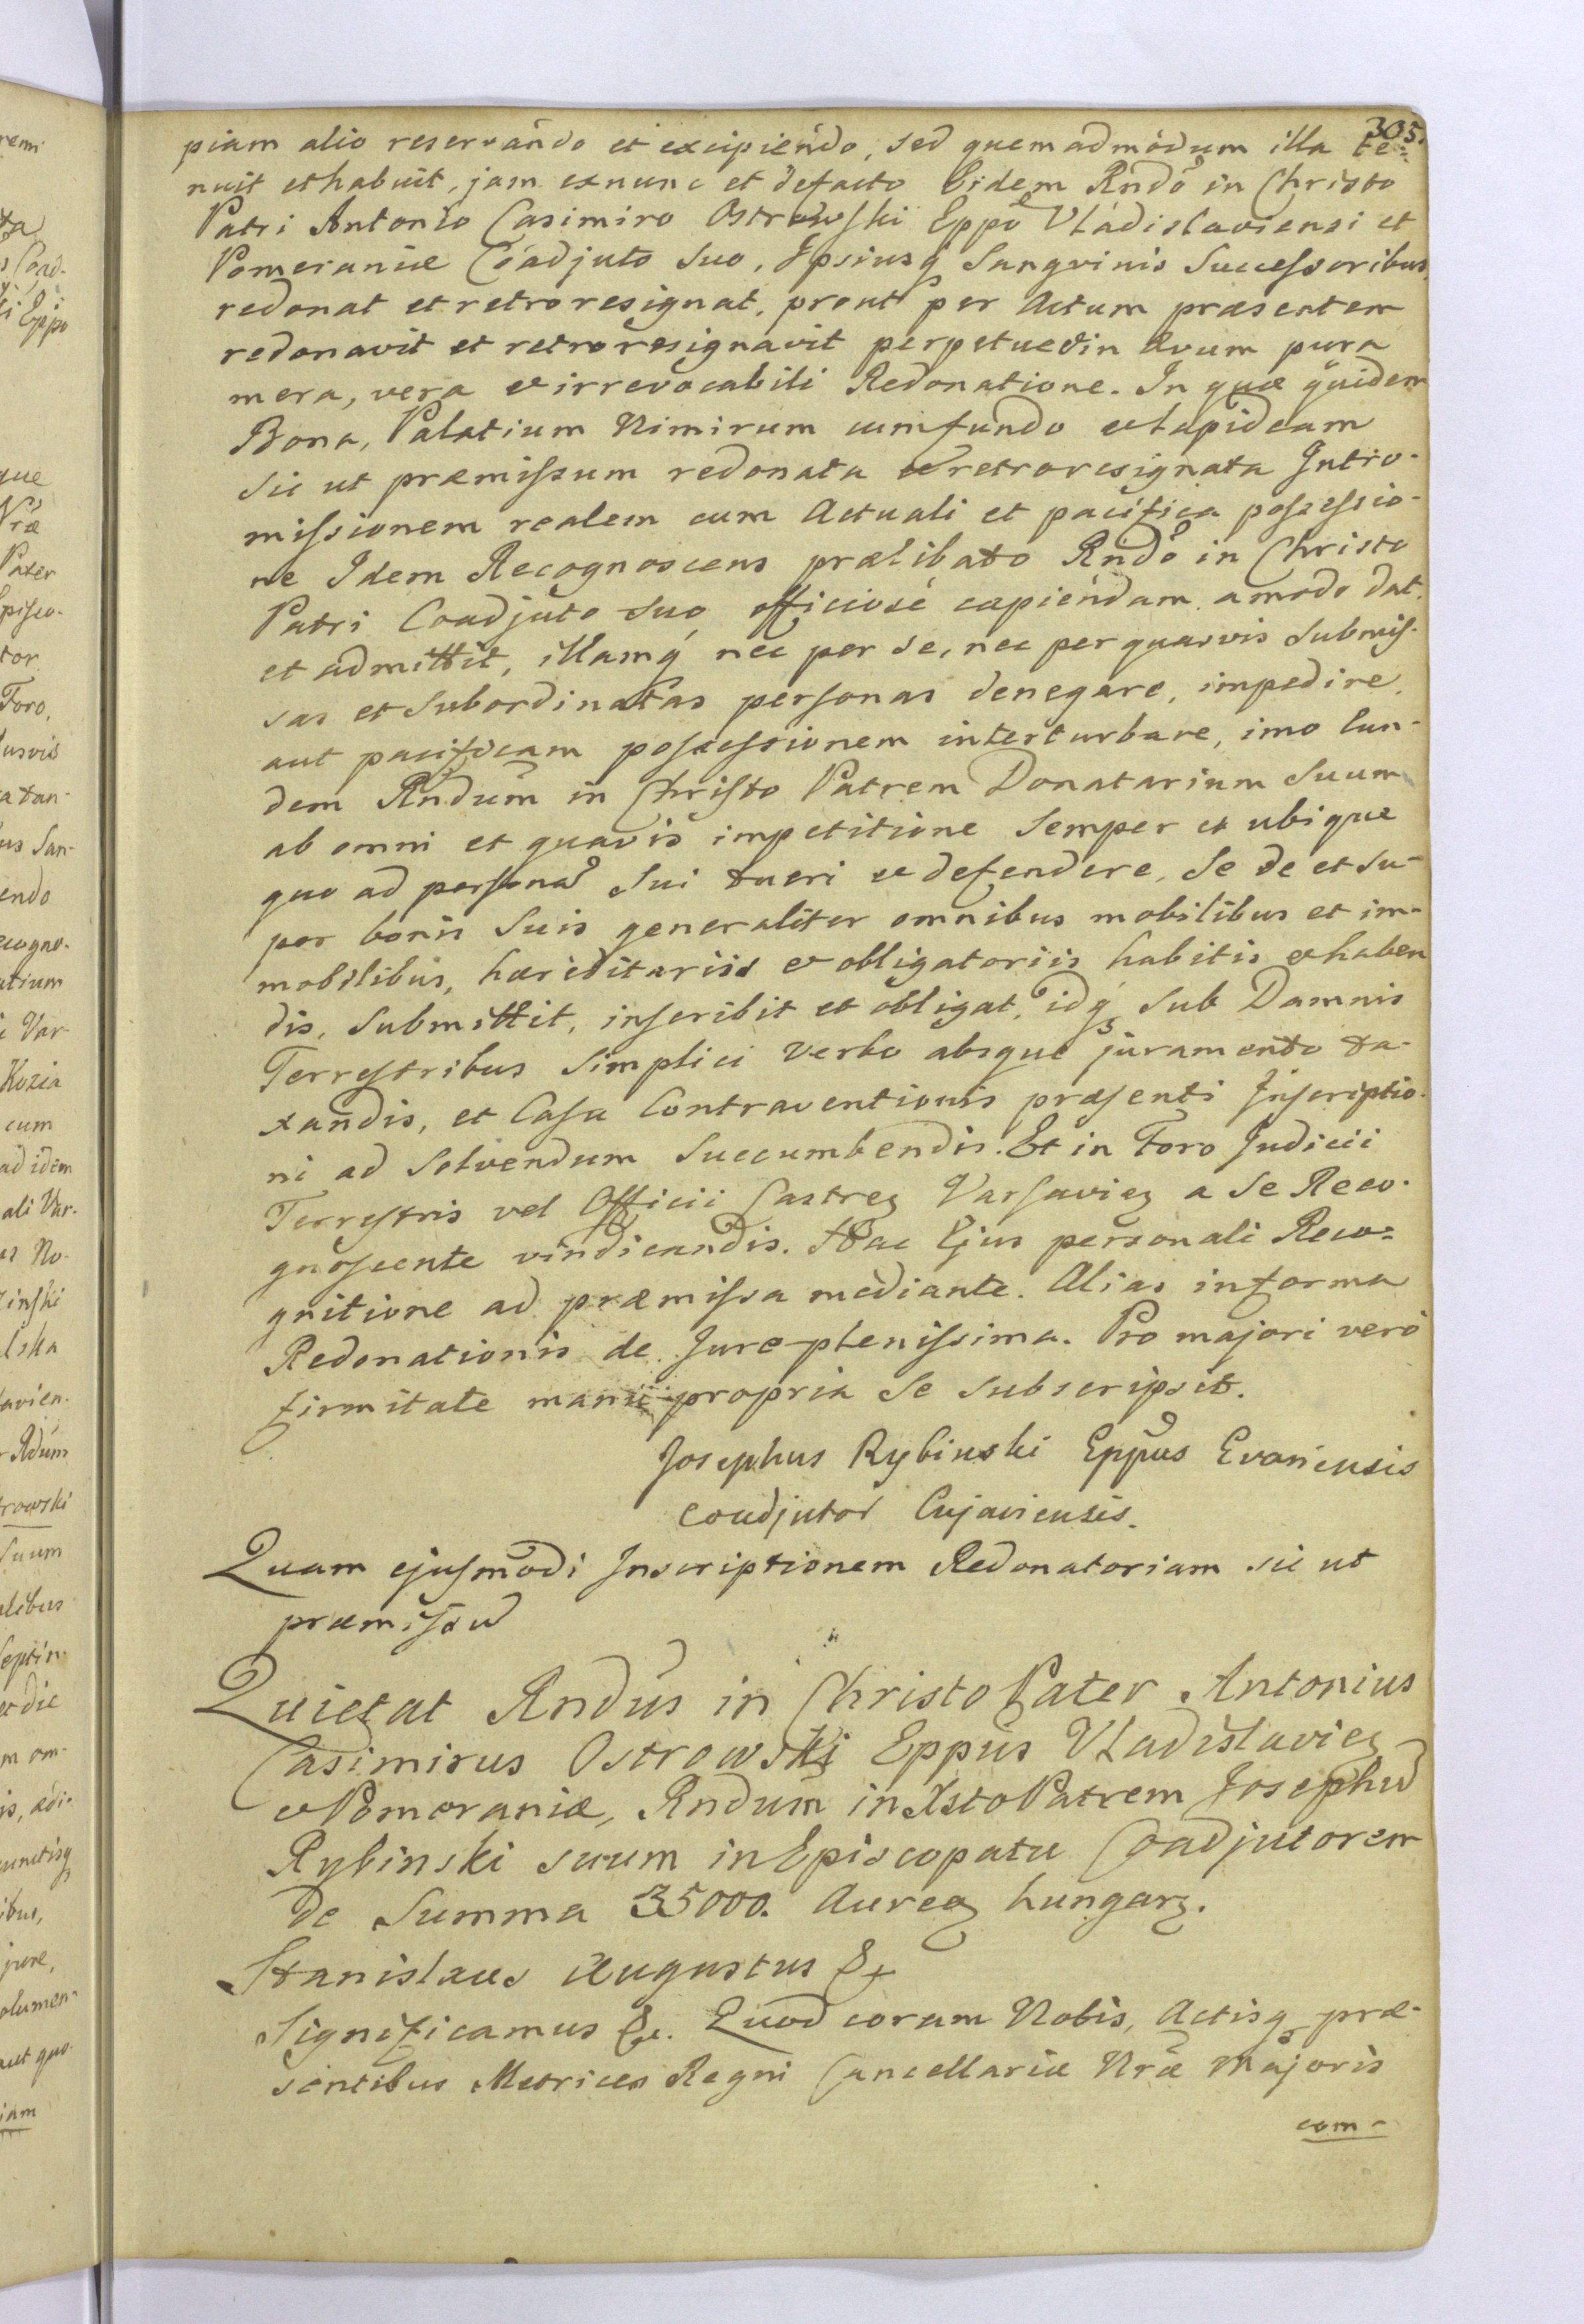 305.
piam alio reservando et excipiendo, sed quemadmodum illa te-
nuit et habuit, jam ex nunc et defacto Eidem Rndo in Christo
Patri Antonio Casimiro Ostrowski Eppo Vladislaviensi et
Pomeraniæ Coadjuto suo, Ipsiusq Sangvinis Successoribus
redonat et retroresignat, prout per Actum præsentem
redonavit et retroresignavit perpetue et in ævum pura
mera, vera et irrevocabili Redonatione. In quæ quidem
Bona, Palatium Nimirum cum fundo et Lapideam
sic ut præmissum redonata et retroresignata Intro-
missionem realem cum Actuali et pacifica possessio-
ne Idem Recognoscens prælibato Rndo in Christo
Patri Coadjuto suo officiose capiendam amodo dat
et admittit, illamq nec per se, nec per quasvis submis-
sas et subordinatas personas denegare, impedire
aut pacificam possessionem interturbare, imo Eun-
dem Rndum in Christo Patrem Donatarium Suum
ab omni et quavis impetitione semper et ubique
quo ad personã sui tueri et defendere, Se de et su-
per bonis suis generaliter omnibus mobilibus et im-
mobilibus, hæreditariis et obligatoriis habitis et haben
dis, submittit, inscribit et obligat, idq sub Damnis
Terrestribus simplici verbo absque juramento ta-
xandis, et Casu Contraventionis præsenti Inscriptio-
ni ad solvendum succumbendis. Et in Foro Judicii
Terrestris vel Officii Castren Varsavien a se Reco-
gnoscente vindicandis. Hac Ejus personali Reco-
gnitione ad præmissa mediante. Alias in forma
Redonationis de Jure plenissima. Pro majori vero
firmitate manu propria se subscripsit.
Josephus Rybinski Eppus Evaniensis
coadjutor Cujaviensis.
Quam ejusmodi Inscriptionem Redonatoriam sic ut
præmissũ
Quietat Rndus in Christo Pater Antonius
Casimirus Ostrowski Eppus Vladislavien
et Pomeraniæ, Rndum in Xsto Patrem Josephũ
Rybinski suum in Episcopatu Coadjutorem
de Summa 35000. Aureor hungar.
Stanislaus Augustus &
Significamus &. Quod coram Nobis, Actisq præ-
sentibus Metrices Regni Cancellariæ Nræ Majoris
com-